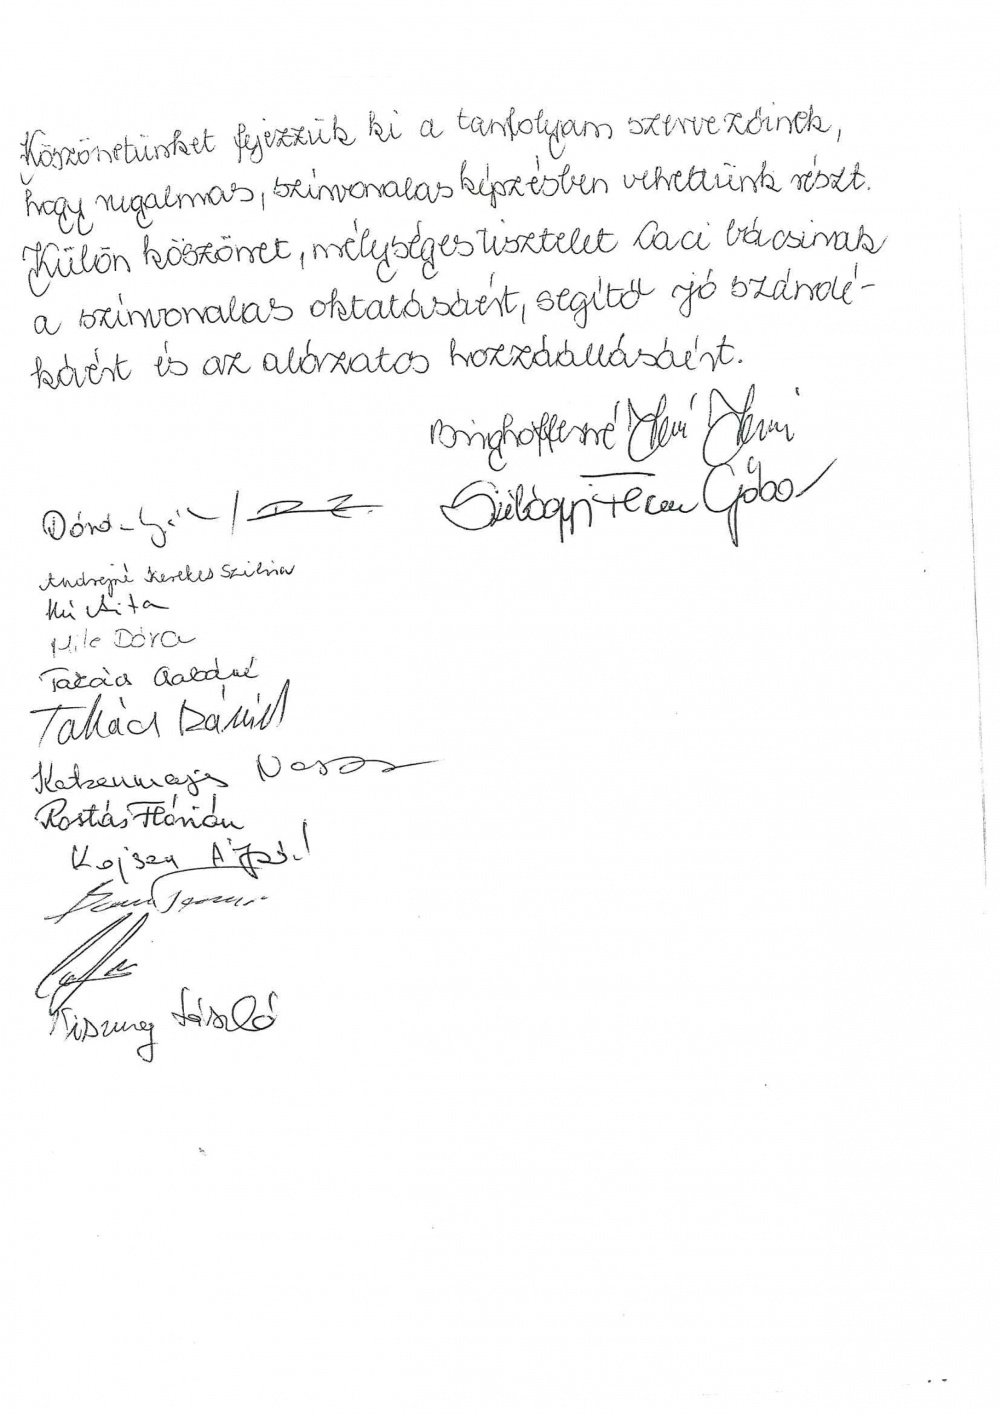 Köszönetünket fejezzük ki a tanfolyam szervezőinek,
hogy rugalmas, színvonalas képzésben vehettünk részt.
Külön köszönet, mélységes tisztelet Laci bácsinak
a színvonalas oktatásáért, segítő jó szándé-
káért és az alázatos hozzáállásáért.
Binghofferné
Szilágyi Ferenc Gábor
Andrejné Kerekes Szilvia
Rita
Mile Dóra
Takács
Takács Dániel
Rostás Flórián
László